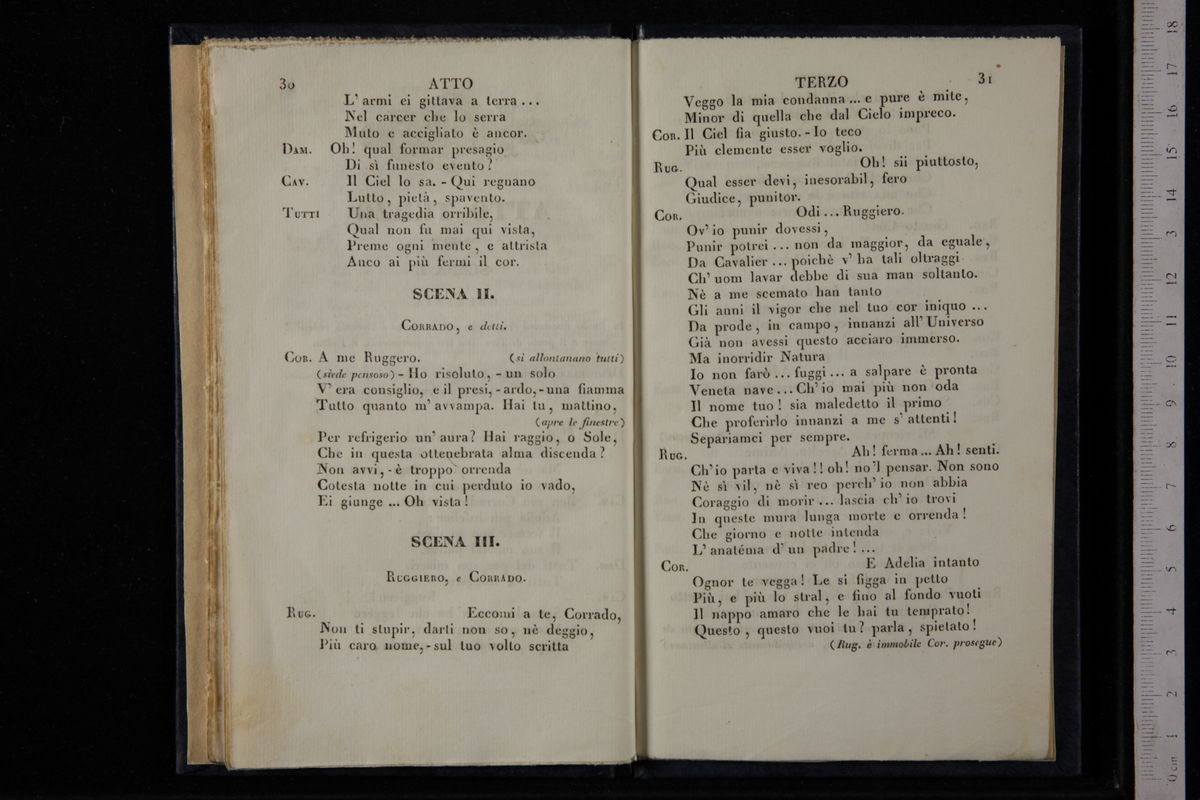 30 ATTO
L' armi ei gittava a terra ...
Nel carcer che lo serra
Muto e accigliato è ancor.
DAM. Oh! qual formar presagio
Di sì funesto evento?
CAV. Il Ciel lo sa. - Qui regnano
Lutto, pietà, spavento.
TUTTI Una tragedia orribile,
Qual non fu mai qui vista,
Preme ogni mente, e attrista
Anco ai più fermi il cor.
SCENA II.
CORRADO, e detti.
COR. A me Ruggero. (si allontanano tutti)
(siede pensoso) - Ho risoluto, - un solo
V' era consiglio, e il presi, - ardo, - una fiamma
Tutto quanto m' avvampa. Hai tu, mattino,
(apre le finestre)
Per refrigerio un' aura? Hai raggio, o Sole,
Che in questa ottenebrata alma discenda?
Non avvi, - è troppo orrenda
Cotesta notte in cui perduto io vado,
Ei giunge ... Oh vista!
SCENA III.
RUGGIERO, e CORRADO.
RUG. Eccomi a te, Corrado,
Non ti stupir, darti non so, nè deggio,
Più caro nome, - sul tuo volto scritta
TERZO 31
Veggo la mia condanna ... e pure è mite,
Minor di quella che dal Cielo impreco.
COR. Il Ciel fia giusto. - Io teco
Più clemente esser voglio.
RUG. Oh! sii piuttosto,
Qual esser devi, inesorabil, fero
Giudice, punitor.
COR. Odi ... Ruggiero.
Ov' io punir dovessi,
Punir potrei ... non da maggior, da eguale,
Da Cavalier ... poichè v' ha tali oltraggi
Ch' uom lavar debbe di sua man soltanto.
Nè a me scemato han tanto
Gli anni il vigor che nel tuo cor iniquo ...
Da prode, in campo, innanzi all' Universo
Già non avessi questo acciaro immerso.
Ma inorridir Natura
Io non farò ... fuggi ... a salpare è pronta
Veneta nave ... Ch' io mai più non oda
Il nome tuo! sia maledetto il primo
Che proferirlo innanzi a me s' attenti!
Separiamci per sempre.
RUG. Ah! ferma ... Ah! senti.
Ch' io parta e viva!! oh! no 'l pensar. Non sono
Nè sì vil, nè sì reo perch' io non abbia
Coraggio di morir ... lascia ch' io trovi
In queste mura lunga morte e orrenda!
Che giorno e notte intenda
L' anatéma d' un padre! ...
COR. E Adelia intanto
Ognor te vegga! Le si figga in petto
Più, e più lo stral, e fino al fondo vuoti
Il nappo amaro che le hai tu temprato!
Questo, questo vuoi tu? parla, spietato!
(Rug. è immobile Cor. prosegue)
0 cm 1 2 3 4 5 6 7 8 9 10 11 12 13 14 15 16 17 18